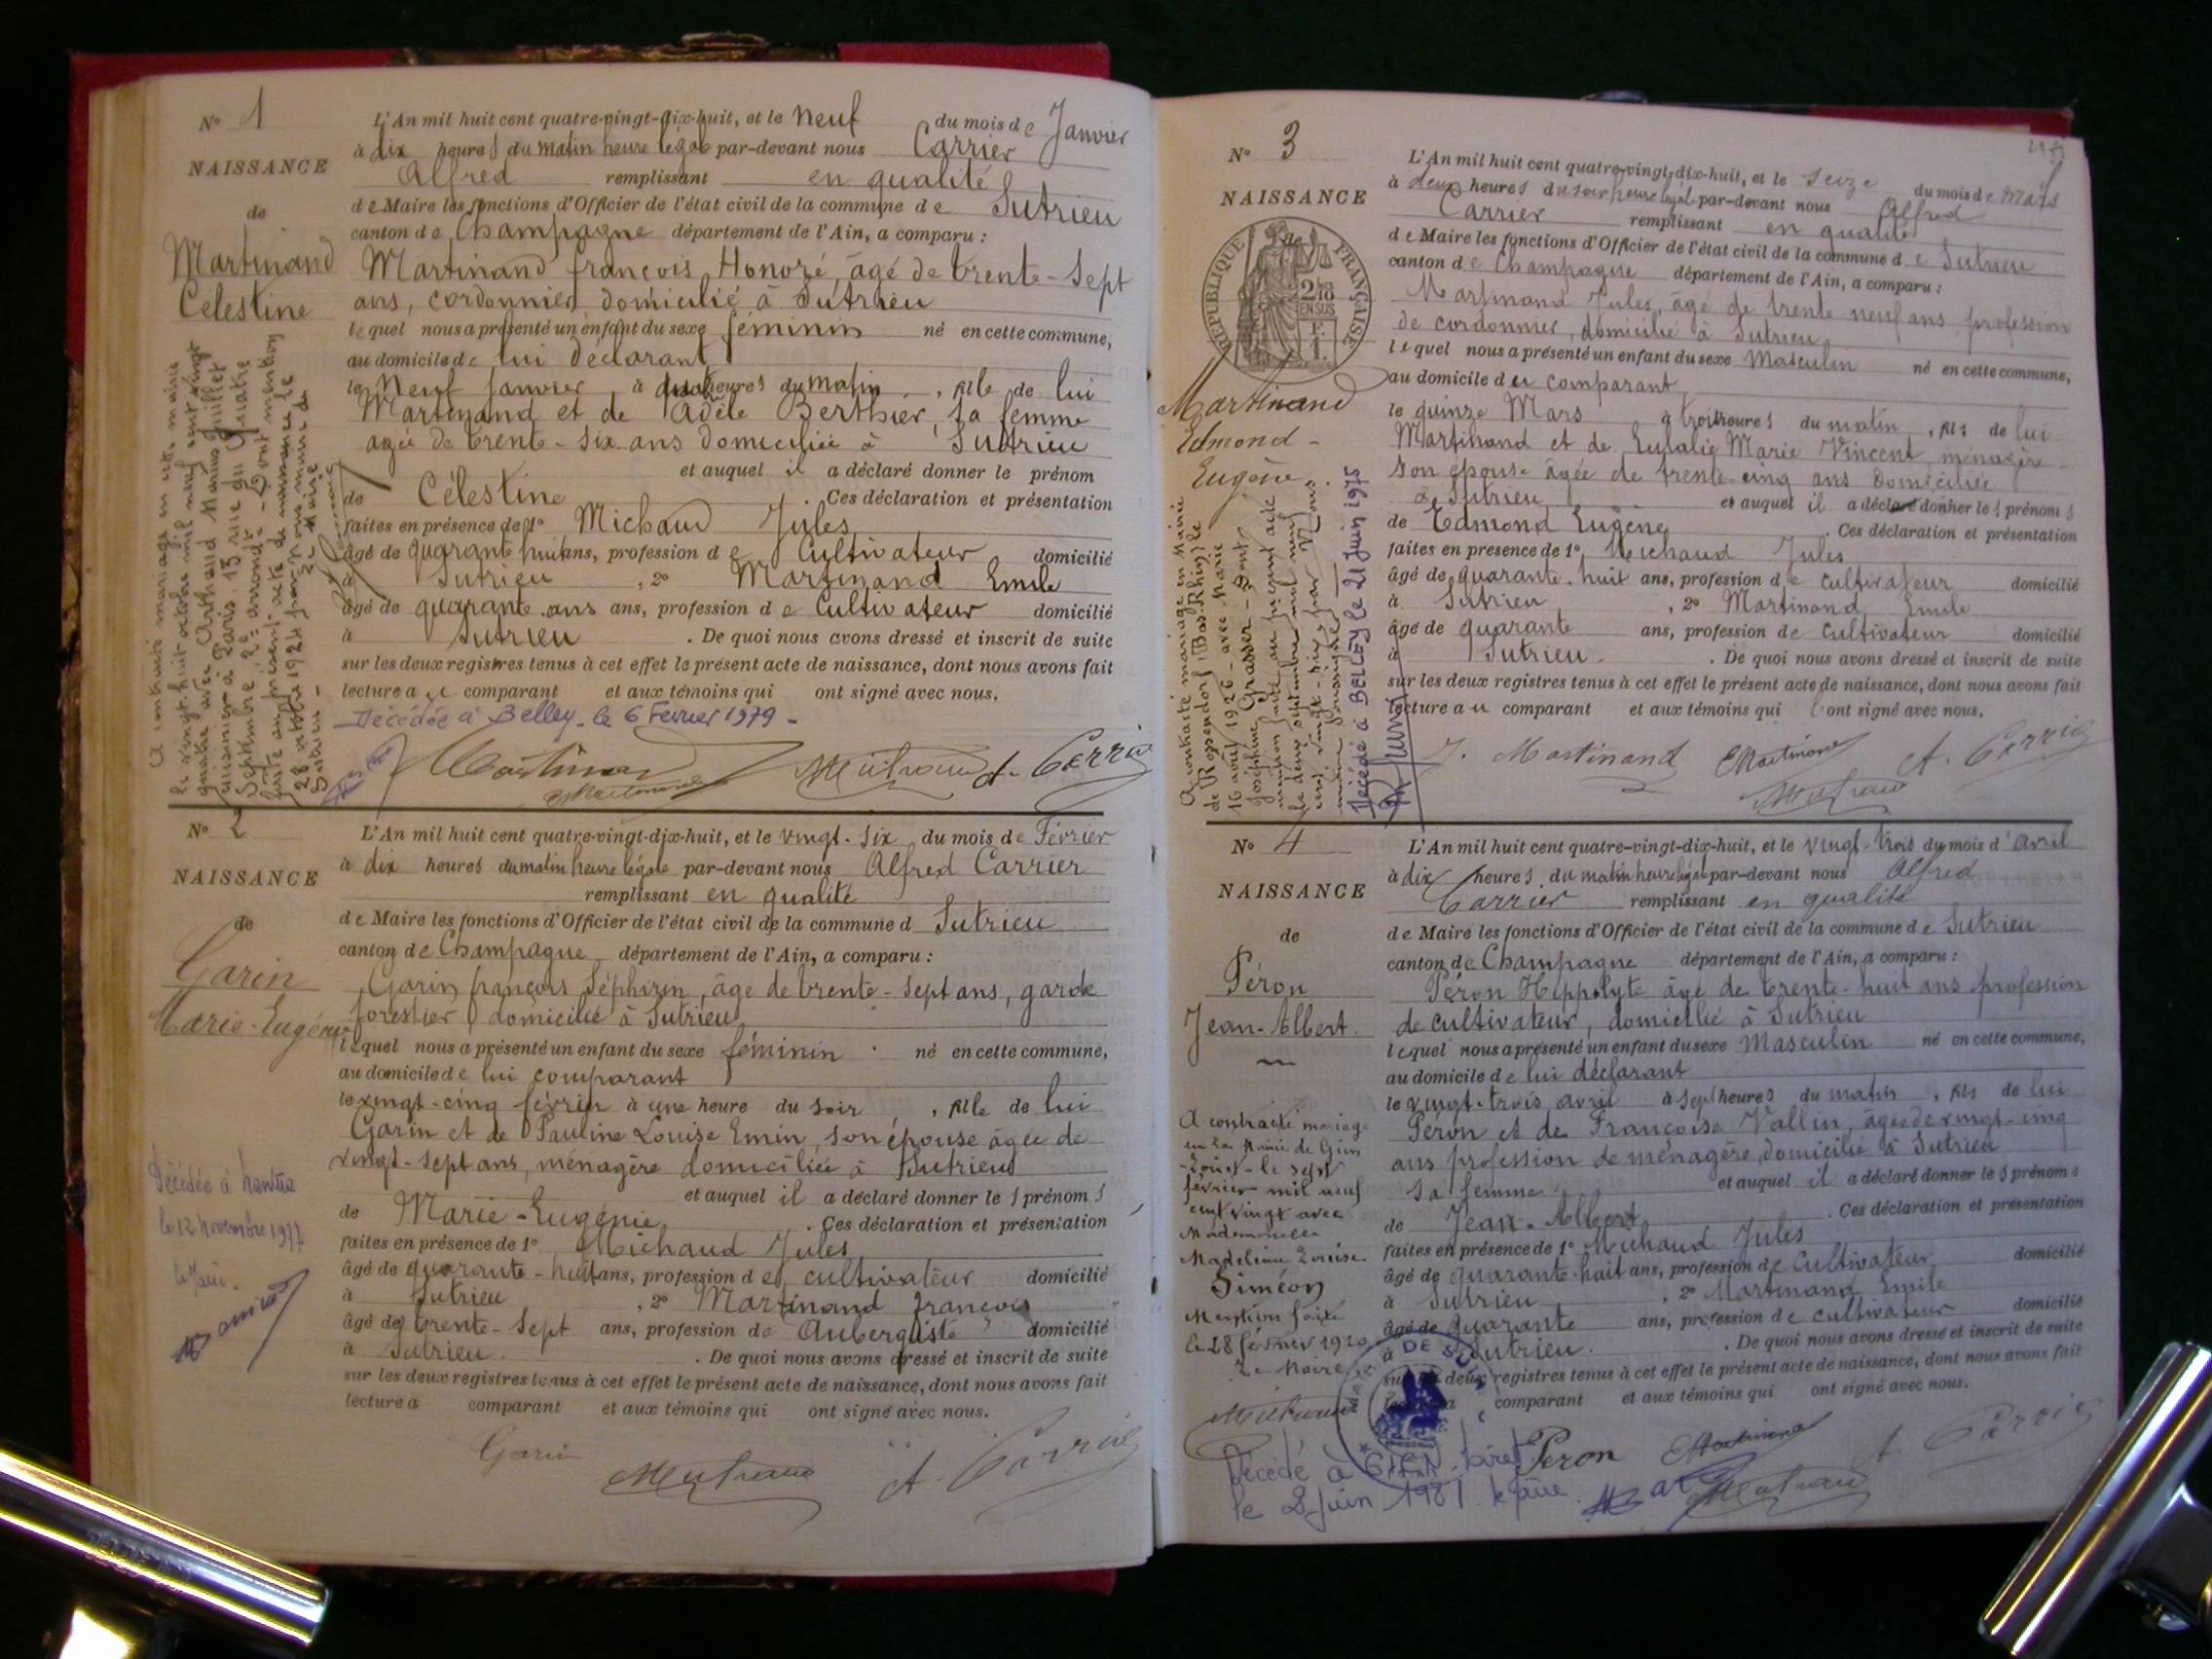 N° 1
NAISSANCE
de
Martinand
Célestine
L'An mil huit cent quatre-vingt-dix-huit, et le neuf du mois de Janvier
à dix heures du matin heure légale par-devant nous Carrier
Alfred remplissant en qualité
de Maire les fonctions d'Officier de l'état civil de la commune de Sutrieu
canton de Champagne département de l'Ain, a comparu :
Martinand françois Honoré, âgé de trente-sept
ans, cordonnier domicilié à Sutrieu
lequel nous a présenté un enfant du sexe féminin né en cette commune,
au domicile de lui déclarant
le neuf janvier, à heures du matin, fille de lui
Martinand et de Adèle Berthier, sa femme
agée de trente-six ans domiciliée à Sutrieu
et auquel il a déclaré donner le prénom
de Célestine. Ces déclaration et présentation
faites en présence de 1° Michaud Jules
âgé de quarante huit ans, profession de Cultivateur domicilié
à Sutrieu, 2° Martinand Emile
âgé de quarante ans ans, profession de Cultivateur domicilié
à Sutrieu. De quoi nous avons dressé et inscrit de suite
sur les deux registres tenus à cet effet le présent acte de naissance, dont nous avons fait
lecture au comparant et aux témoins qui ont signé avec nous.
Décédée à Belley le 6 Février 1979 -
A contracté mariage en cette mairie
le vingt huit octobre mil neuf cent vingt
quatre avec Arthaud Marius
cuisinier à Paris, 13 rue du Quatre
Septembre 2e arrondt - Dont mention
faite au présent acte de naissance le
28 octobre 1924 par nous maire de
Sutrieu - Le Maire
A. Carrier
N° 2
NAISSANCE
de
Garin
Marie-Eugénie
L'An mil huit cent quatre-vingt-dix-huit, et le vingt-six du mois de Février
à dix heures du matin heure légale par-devant nous Alfred Carrier
remplissant en qualité
de Maire les fonctions d'Officier de l'état civil de la commune d Sutrieu
canton de Champagne département de l'Ain, a comparu :
Garin françois Séphirin, âgé de trente-sept ans, garde
forestier domicilié à Sutrieu
lequel nous a présenté un enfant du sexe féminin né en cette commune,
au domicile de lui comparant
le vingt-cinq février à une heure du soir, fille de lui
Garin et de Pauline Louise Emin, son épouse âgée de
vingt-sept ans, ménagère domiciliée à Sutrieu
et auquel il a déclaré donner les prénoms
de Marie-Eugénie. Ces déclaration et présentation
faites en présence de 1° Michaud Jules
âgé de quarante-huit ans, profession de cultivateur domicilié
à Sutrieu, 2° Martinand françois
âgé de trente-sept ans, profession de Aubergiste domicilié
à Sutrieu. De quoi nous avons dressé et inscrit de suite
sur les deux registres tenus à cet effet le présent acte de naissance, dont nous avons fait
lecture a comparant et aux témoins qui ont signé avec nous.
Décédée à Nantua
le 12 novembre 1977
le Maire.
Garin
A. Carrier
N° 3
NAISSANCE
de
RÉPUBLIQUE FRANÇAISE
2/10 EN SUS
Martinand
Edmond-
Eugène
L'An mil huit cent quatre-vingt-dix-huit, et le seize du mois de Mars
à deux heures du soir heure légale par-devant nous Alfred
Carrier remplissant en qualité
de Maire les fonctions d'Officier de l'état civil de la commune de Sutrieu
canton de Champagne département de l'Ain, a comparu :
Martinand Jules, âgé de trente neuf ans, profession
de cordonnier, domicilié à Sutrieu
lequel nous a présenté un enfant du sexe Masculin né en cette commune,
au domicile du comparant
le quinze Mars à trois heures du matin, fils de lui
Martinand et de Eulalie Marie Vincent, ménagère
son épouse âgée de trente-cinq ans domiciliée
à Sutrieu et auquel il a déclaré donner les prénoms
de Edmond Eugène. Ces déclaration et présentation
faites en présence de 1° Michaud Jules
âgé de quarante-huit ans, profession de cultivateur domicilié
à Sutrieu, 2° Martinand Emile
âgé de quarante ans, profession de cultivateur domicilié
à Sutrieu. De quoi nous avons dressé et inscrit de suite
sur les deux registres tenus à cet effet le présent acte de naissance, dont nous avons fait
lecture au comparant et aux témoins qui ont signé avec nous.
A contracté mariage en Mairie
(Bas-Rhin) le
16 avril 1926 avec Marie
Joséphine Grasser - Dont
mention faite au présent acte
le deux septembre mil neuf
cent vingt-six, par Nous,
maire soussigné
Décédé à BELLEY le 21 Juin 1975
J. Martinand EMartinand A. Carrier
N° 4
NAISSANCE
de
Péron
Jean-Albert.
L'An mil huit cent quatre-vingt-dix-huit, et le vingt-trois du mois d'avril
à dix heures du matin heure légale par-devant nous Alfred
Carrier remplissant en qualité
de Maire les fonctions d'Officier de l'état civil de la commune de Sutrieu
canton de Champagne département de l'Ain, a comparu :
Péron Hippolyte âgé de trente-huit ans profession
de cultivateur, domicilié à Sutrieu
lequel nous a présenté un enfant du sexe Masculin né en cette commune,
au domicile de lui déclarant
le vingt-trois avril à sept heures du matin, fils de lui
Péron et de Françoise Vallin, âgée de vingt-cinq
ans profession de ménagère, domicilié à Sutrieu
sa femme et auquel il a déclaré donner les prénoms
de Jean-Albert. Ces déclaration et présentation
faites en présence de 1° Michaud Jules
âgé de quarante-huit ans, profession de Cultivateur domicilié
à Sutrieu, 2° Martinand Emile
âgé de quarante ans, profession de cultivateur domicilié
à Sutrieu. De quoi nous avons dressé et inscrit de suite
sur les deux registres tenus à cet effet le présent acte de naissance, dont nous avons fait
comparant et aux témoins qui ont signé avec nous.
A contracté mariage
en la Mairie de Gien
Loiret - le sept
février mil neuf
cent vingt avec
Mademoiselle
Madeleine Louise
Siméon
Mention faite
le 28 février 1920
Le Maire
Décédé à GIEN Loiret
le 2 Juin 1981. le Maire
Péron EMartinand A. Carrier